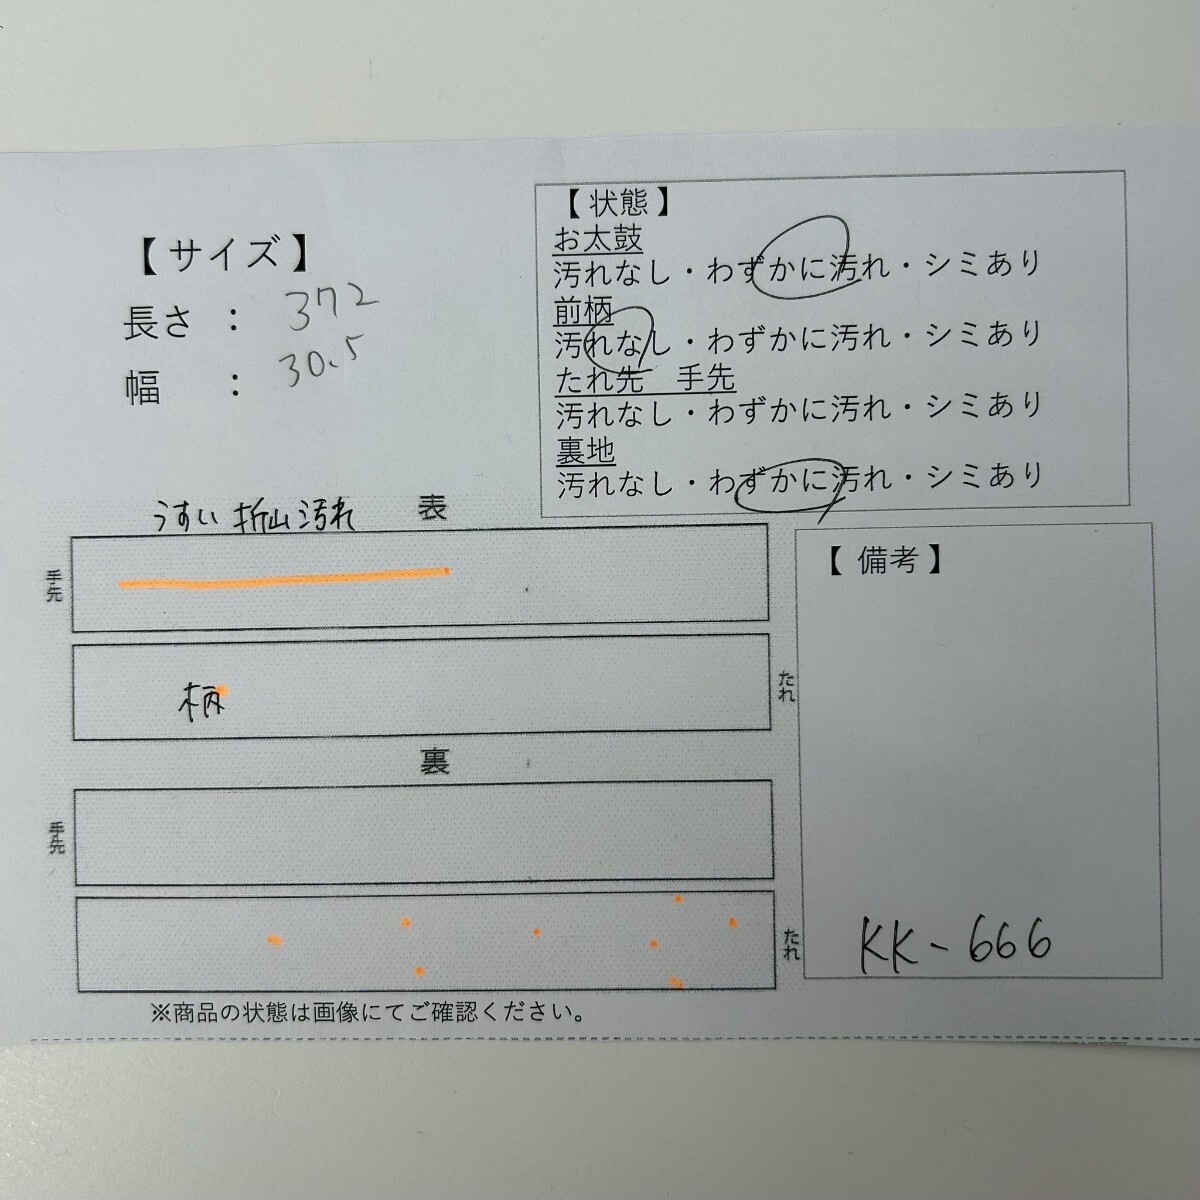 【サイズ】
長さ ： 372
幅 ： 30.5
【状態】
お太鼓
汚れなし・わずかに汚れ・シミあり
前柄
汚れなし・わずかに汚れ・シミあり
たれ先 手先
汚れなし・わずかに汚れ・シミあり
裏地
汚れなし・わずかに汚れ・シミあり
うすい折山汚れ 表
手先
柄
たれ
裏
手先
たれ
※商品の状態は画像にてご確認ください。
【備考】
KK-666